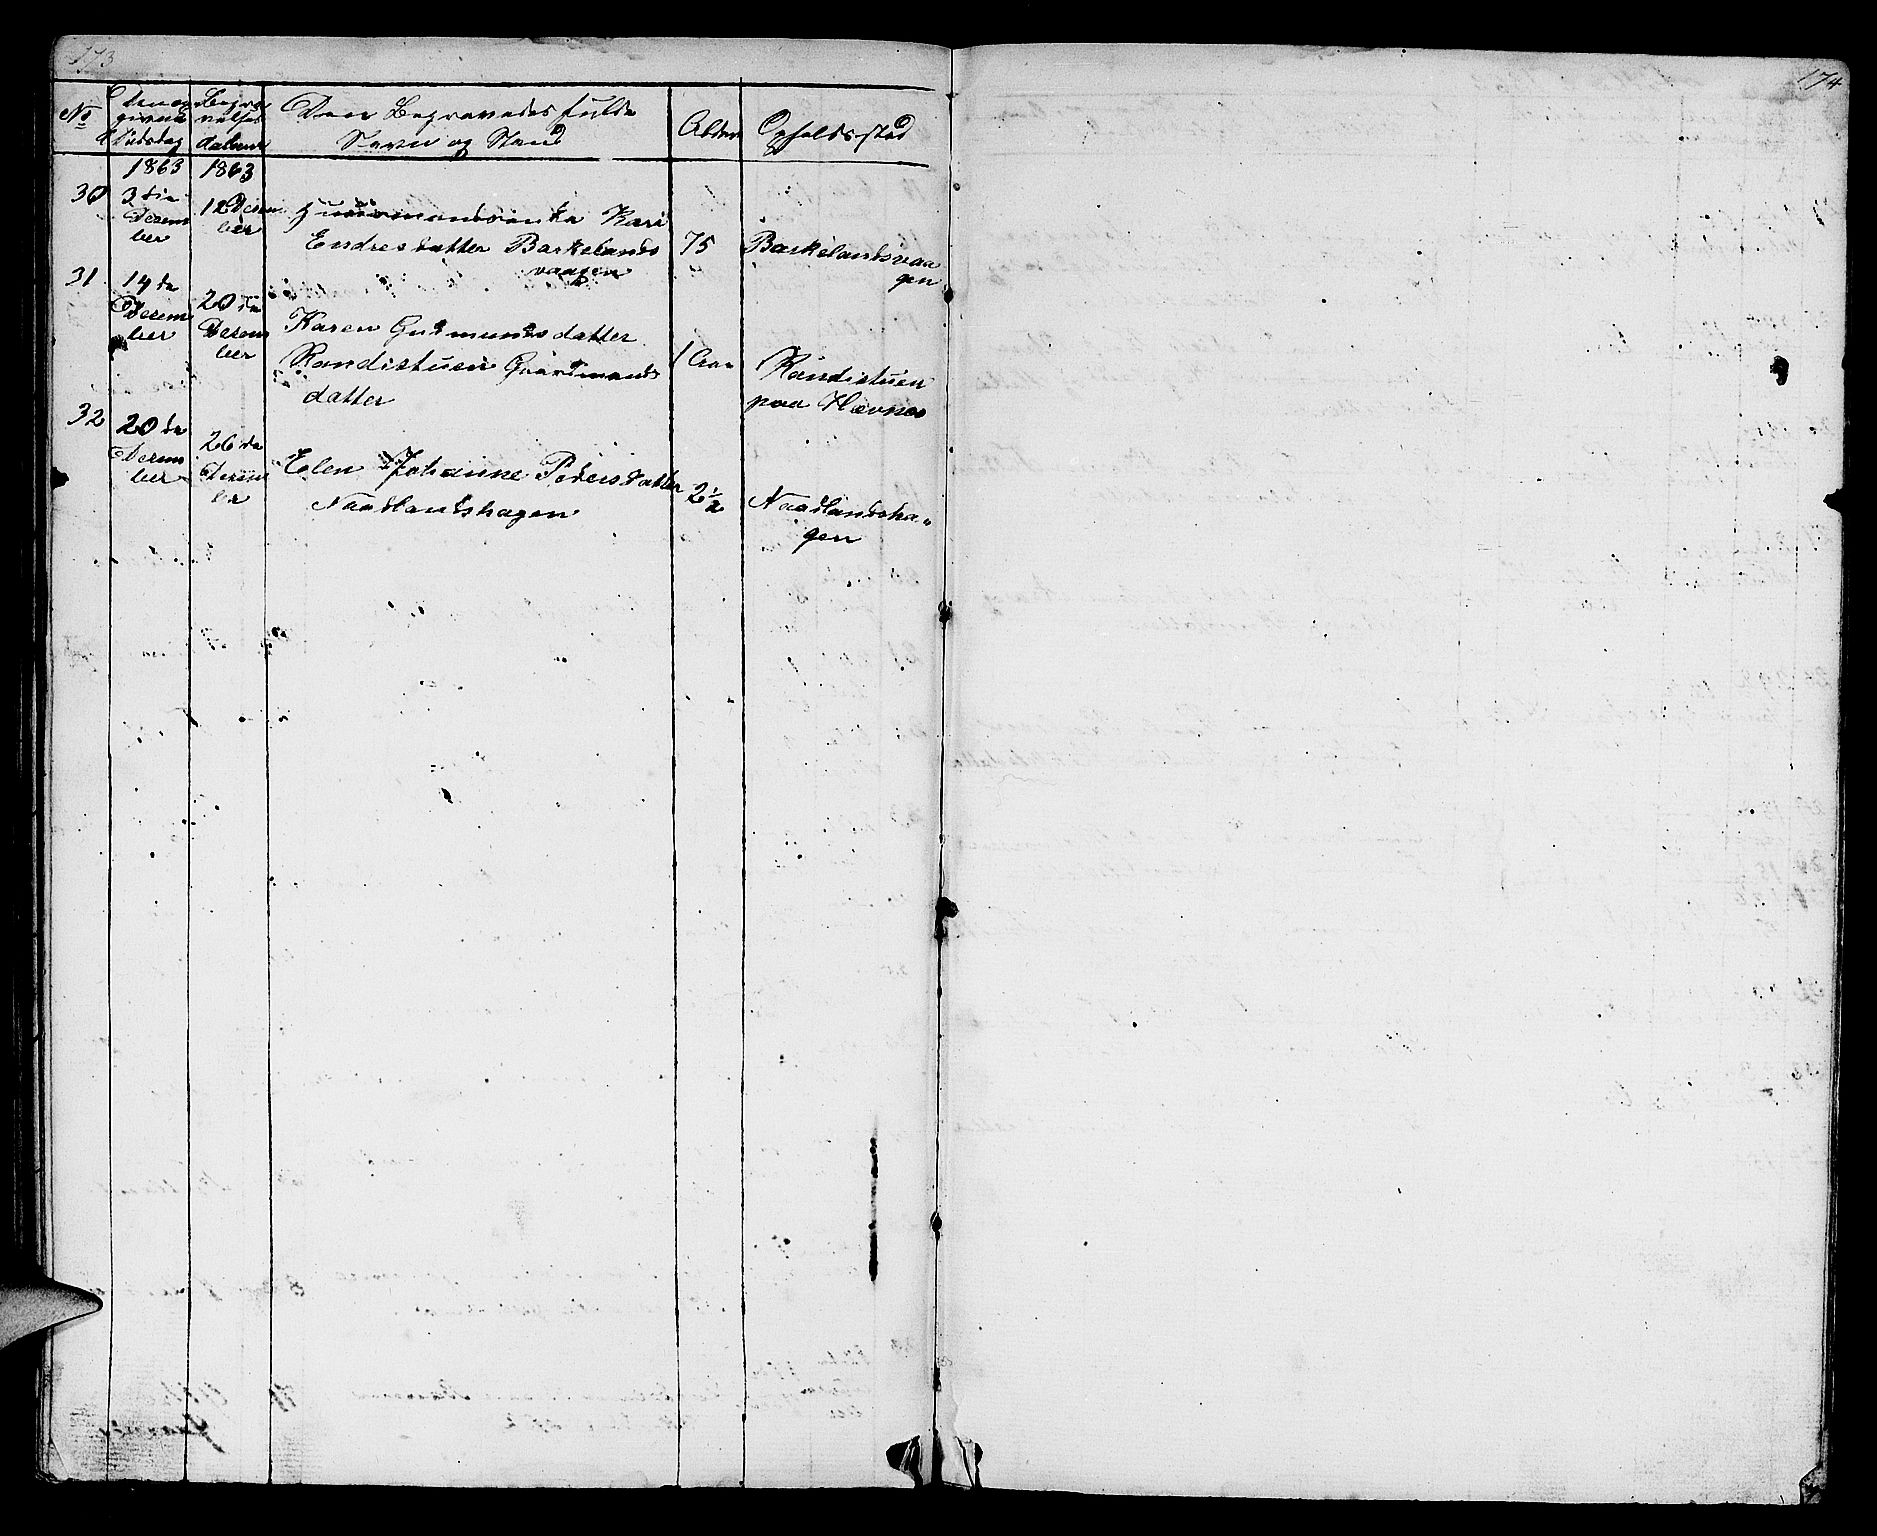 173
174
No
Den op
givne
Dødsdag
Begra
velses
datume
Den Begravedes fulde
Navn og Stand
Alder
Opholdssted
1863
1863
30
3die
Decem
ber
12 Decem
ber
Huusmandsenke Kari
Endresdatter Backelands
vaagen
75
Backelandsvaa
gen
31
14de
Decem
ber
20de
Decem
ber
Karen Gudmundsdatter
Randistuen Gaardmands
datter
1 Aar
Randistuen
paa Hævnes
32
20de
Decem
ber
26de
Decem
ber
Elen Johanne Pedersdatter
Naadlandshagen
2½
Naadlandsha„
gen